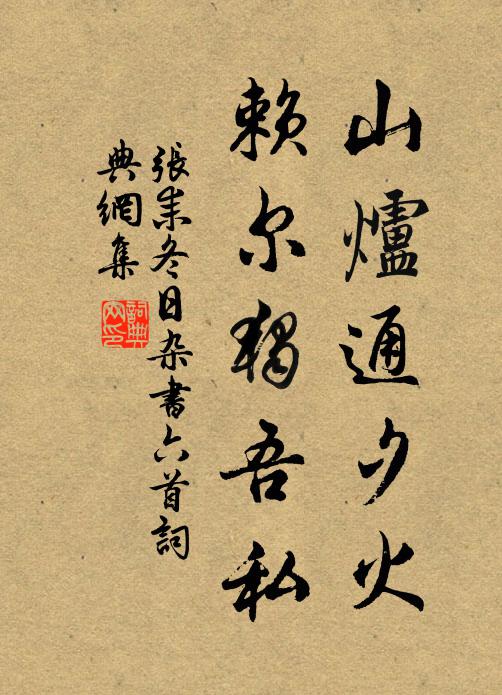 山爐通夕火
赖尔独吾私
張耒冬日杂書六首詞
典網集
詞典網印